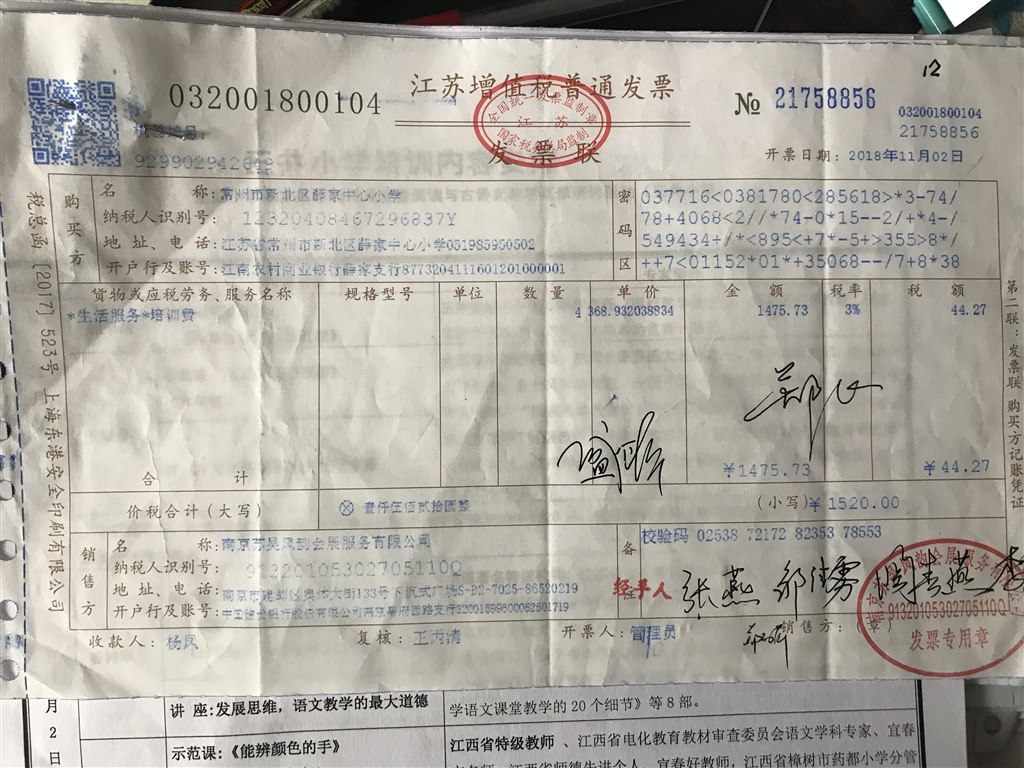 12
032001800104
江苏增值税普通发票
发票联
全国统一发票监制章
江苏
国家税务总局监制
№ 21758856
032001800104
21758856
机器编号:
929902942649
开票日期: 2018年11月02日
税总函〔2017〕523号 上海东港安全印刷有限公司
购买方
名称: 常州市新北区薛家中心小学
纳税人识别号: 12320408467296837Y
地址、电话: 江苏省常州市新北区薛家中心小学051985950502
开户行及账号: 江南农村商业银行薛家支行8773204111601201000001
密码区
037716<0381780<285618>*3-74/
78+4068<2//*74-0*15--2/+*4-/
549434+/*<895<+7*-5+>355>8*/
++7<01152*01*+35068--/7+8*38
货物或应税劳务、服务名称 规格型号 单位 数量 单价 金额 税率 税额
*生活服务*培训费 4 368.932038834 1475.73 3% 44.27
合计 ¥1475.73 ¥44.27
价税合计(大写) ⊗ 壹仟伍佰贰拾圆整 (小写)¥ 1520.00
第二联:发票联 购买方记账凭证
销售方
名称: 南京苏昊风韵会展服务有限公司
纳税人识别号: 91320105302705110Q
地址、电话: 南京市建邺区奥体大街133号
开户行及账号:
备
校验码 02538 72172 82353 78553
经手人 张燕
收款人: 杨凤 复核: 王丙清 开票人: 管理员 销售方:
91320105302705110Q
发票专用章
月
2
日
讲 座:发展思维,语文教学的最大道德
学语文课堂教学的20个细节》等8部。
示范课:《能辨颜色的手》
江西省特级教师 、江西省电化教育教材审查委员会语文学科专家、宜春